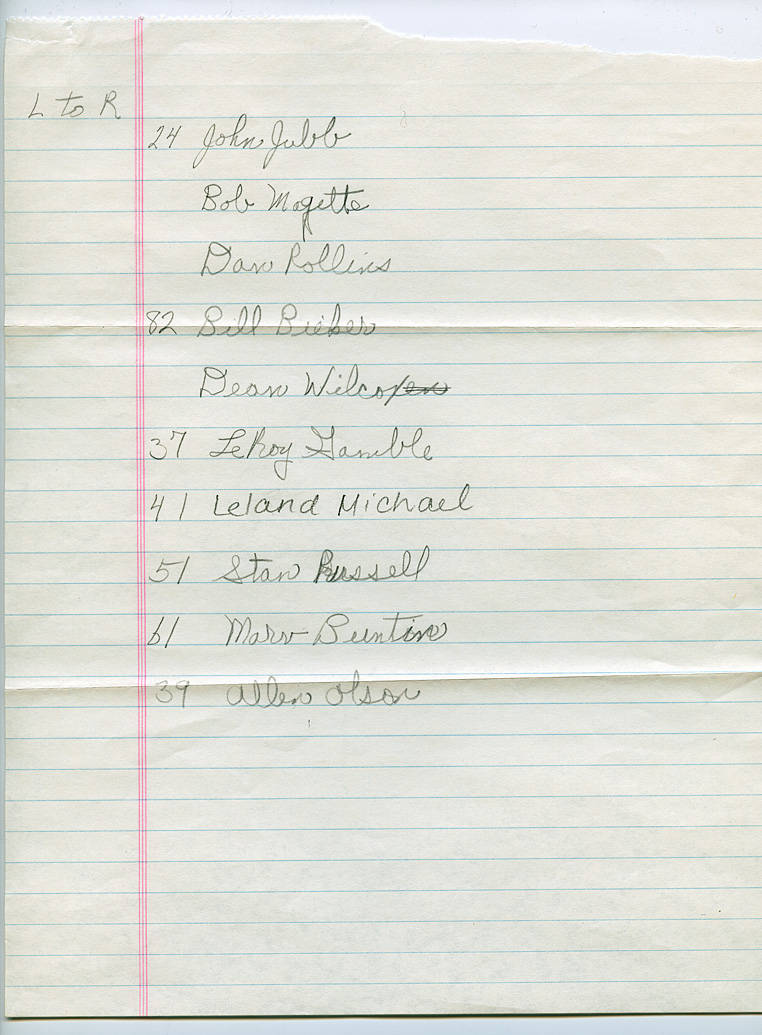 L to R
24 John Jubb
Bob Magette
Dan Rollins
82 Bill Bieber
Dean Wilcox
37 LeRoy Gamble
41 Leland Michael
51 Stan Russell
61 Marv Buntine
39 Allen Olson